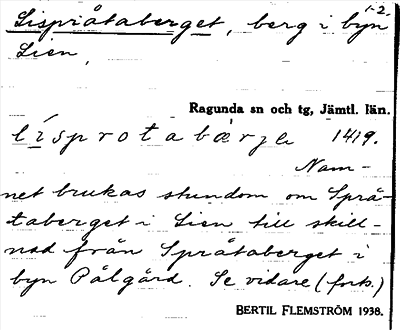 1-2.
Lispråtaberget, berg i byn
Lien,
Ragunda sn och tg, Jämtl. län.
lísprotabärje 1419.
Nam-
net brukas stundom om Språ-
taberget i Lien till skill-
nad från Språtaberget i
byn Pålgård. Se vidare (forts.)
BERTIL FLEMSTRÖM 1938.